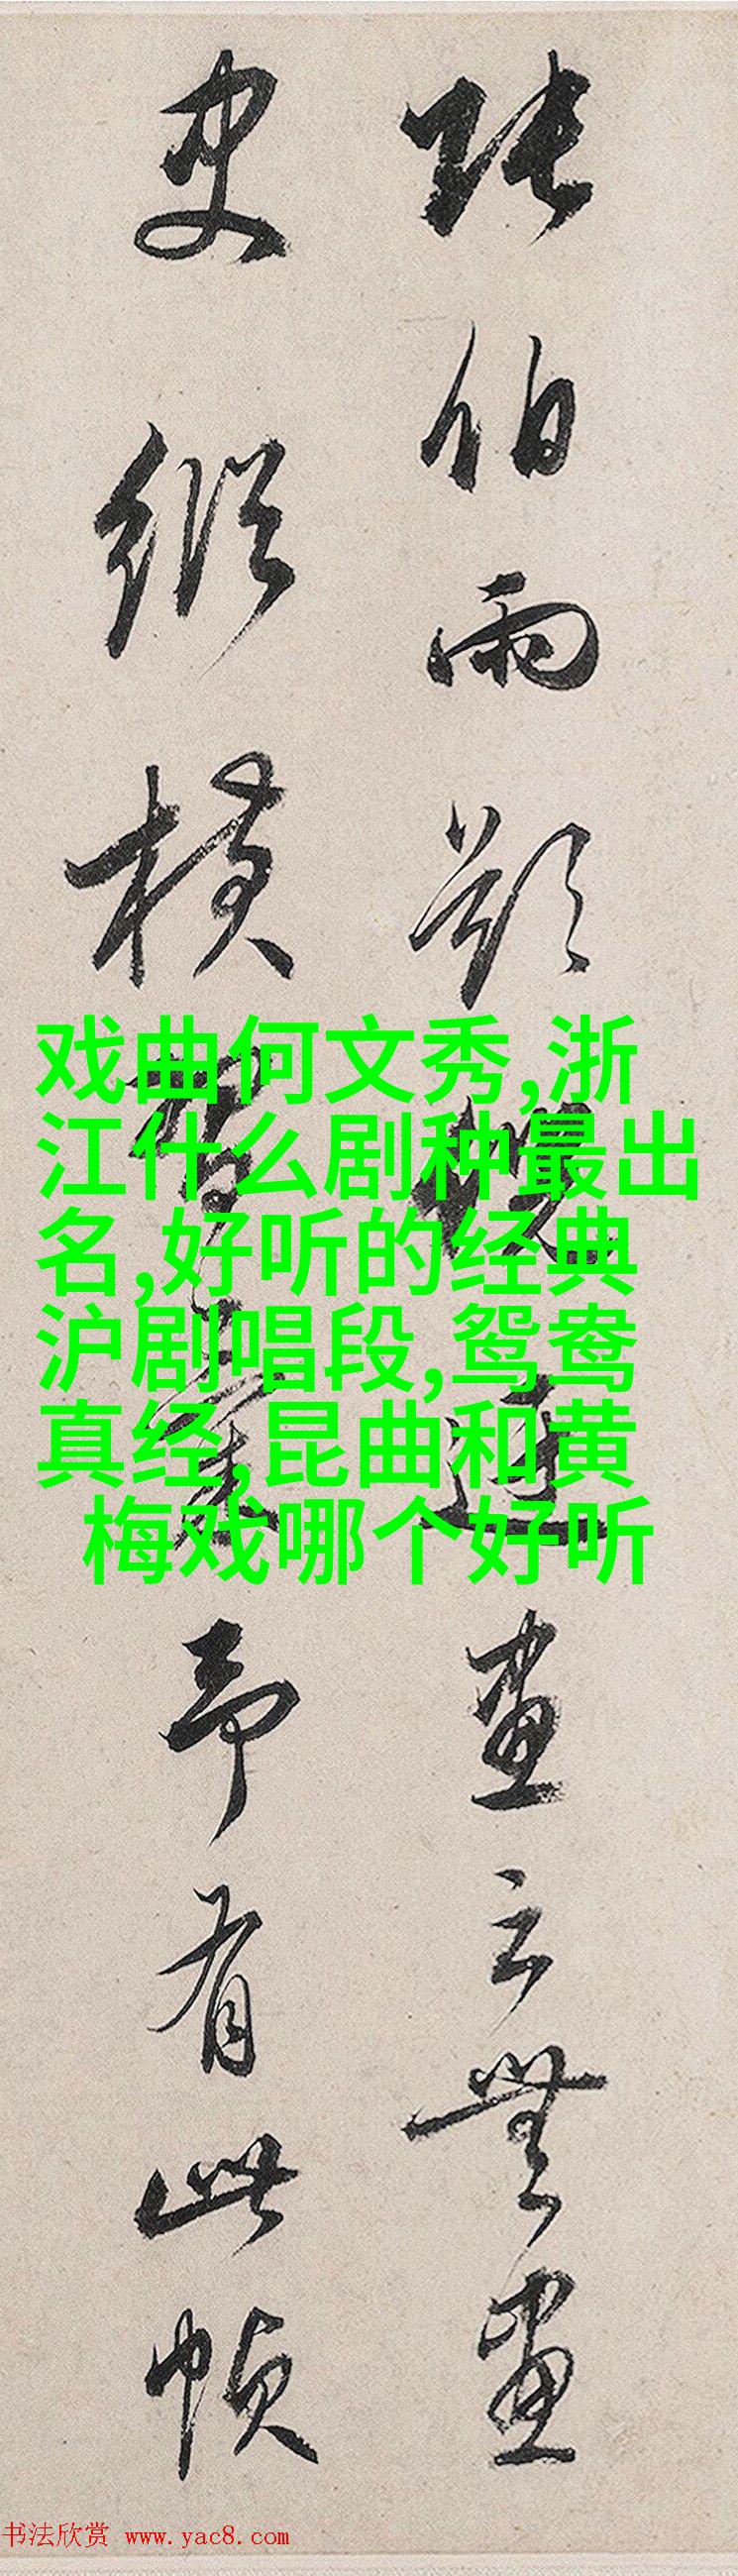 张伯雨题
画云无画
史纵横
予有此帧
戏曲何文秀,浙
江什么剧种最出
名,好听的经典
沪剧唱段,鸳鸯
真经,昆曲和黄
梅戏哪个好听
书法欣赏 www.yac8.com